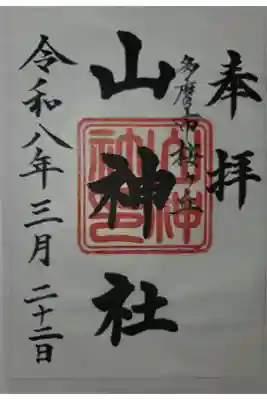 奉拝
多摩市桜ヶ丘
山神社
令和八年三月二十二日